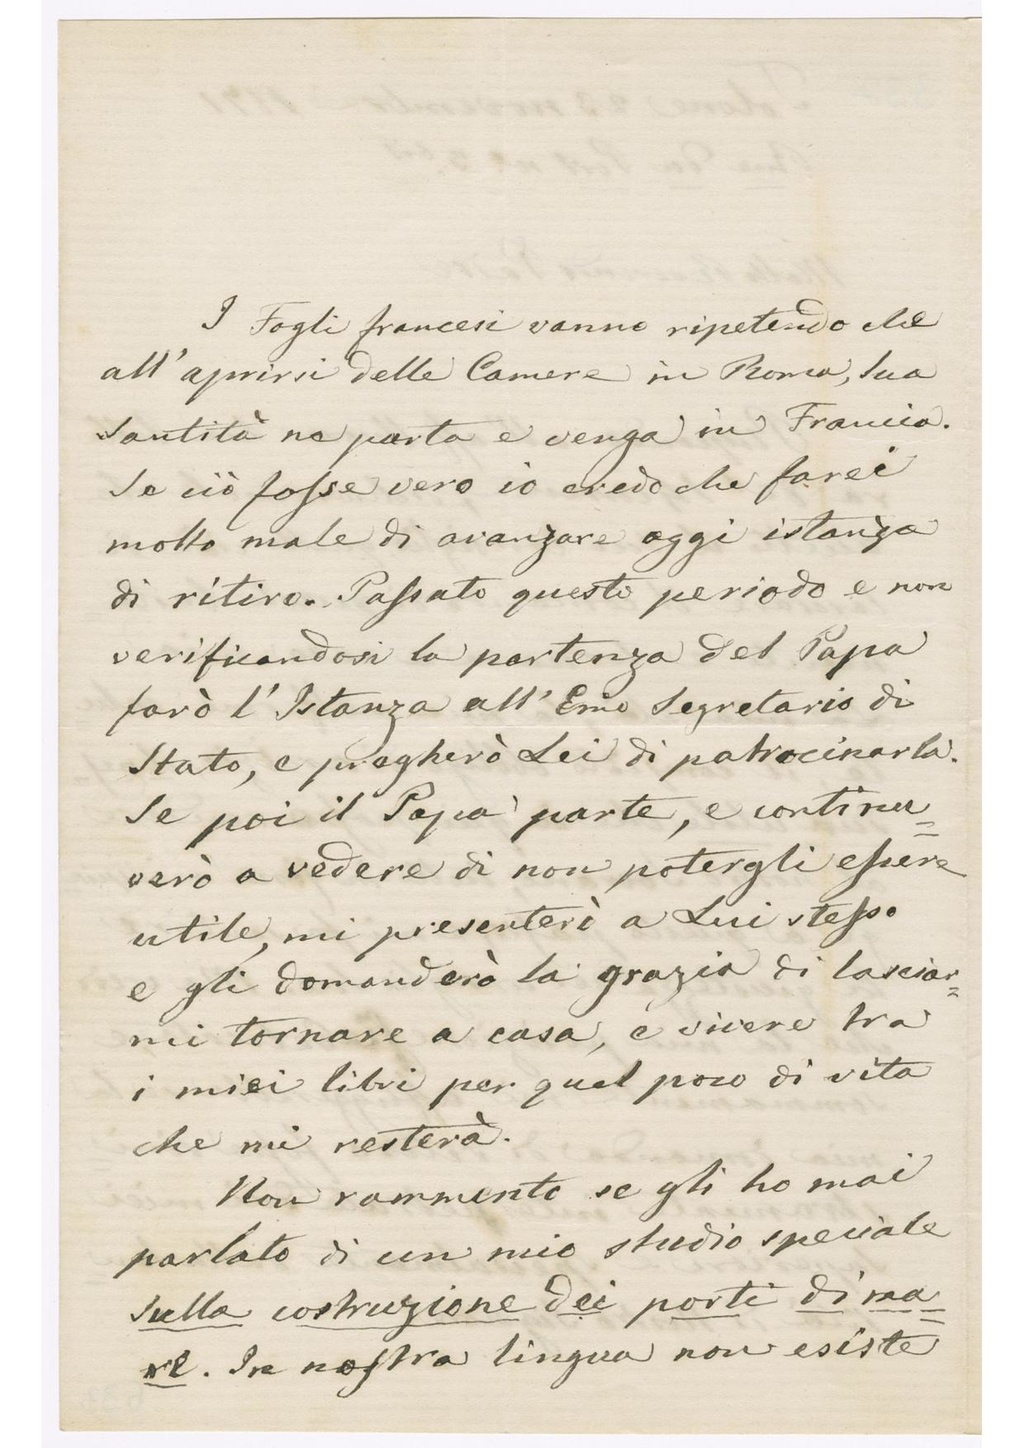 I Fogli francesi vanno ripetendo che
all'aprirsi delle Camere in Roma, Sua
Santità ne parta e venga in Francia.
Se ciò fosse vero io credo che farei
molto male di avanzare oggi istanza
di ritiro. Passato questo periodo e non
verificandosi la partenza del Papa
farò l'Istanza all'Emo Segretario di
Stato, e pregherò Lei di patrocinarla.
Se poi il Papa parte, e continu=
erò a vedere di non potergli essere
utile, mi presenterò a Lui stesso
e gli domanderò la grazia di lasciar=
mi tornare a casa, e vivere tra
i miei libri per quel poco di vita
che mi resterà.
Non rammento se gli ho mai
parlato di un mio studio speciale
sulla costruzione dei porti di ma=
re. In nostra lingua non esiste